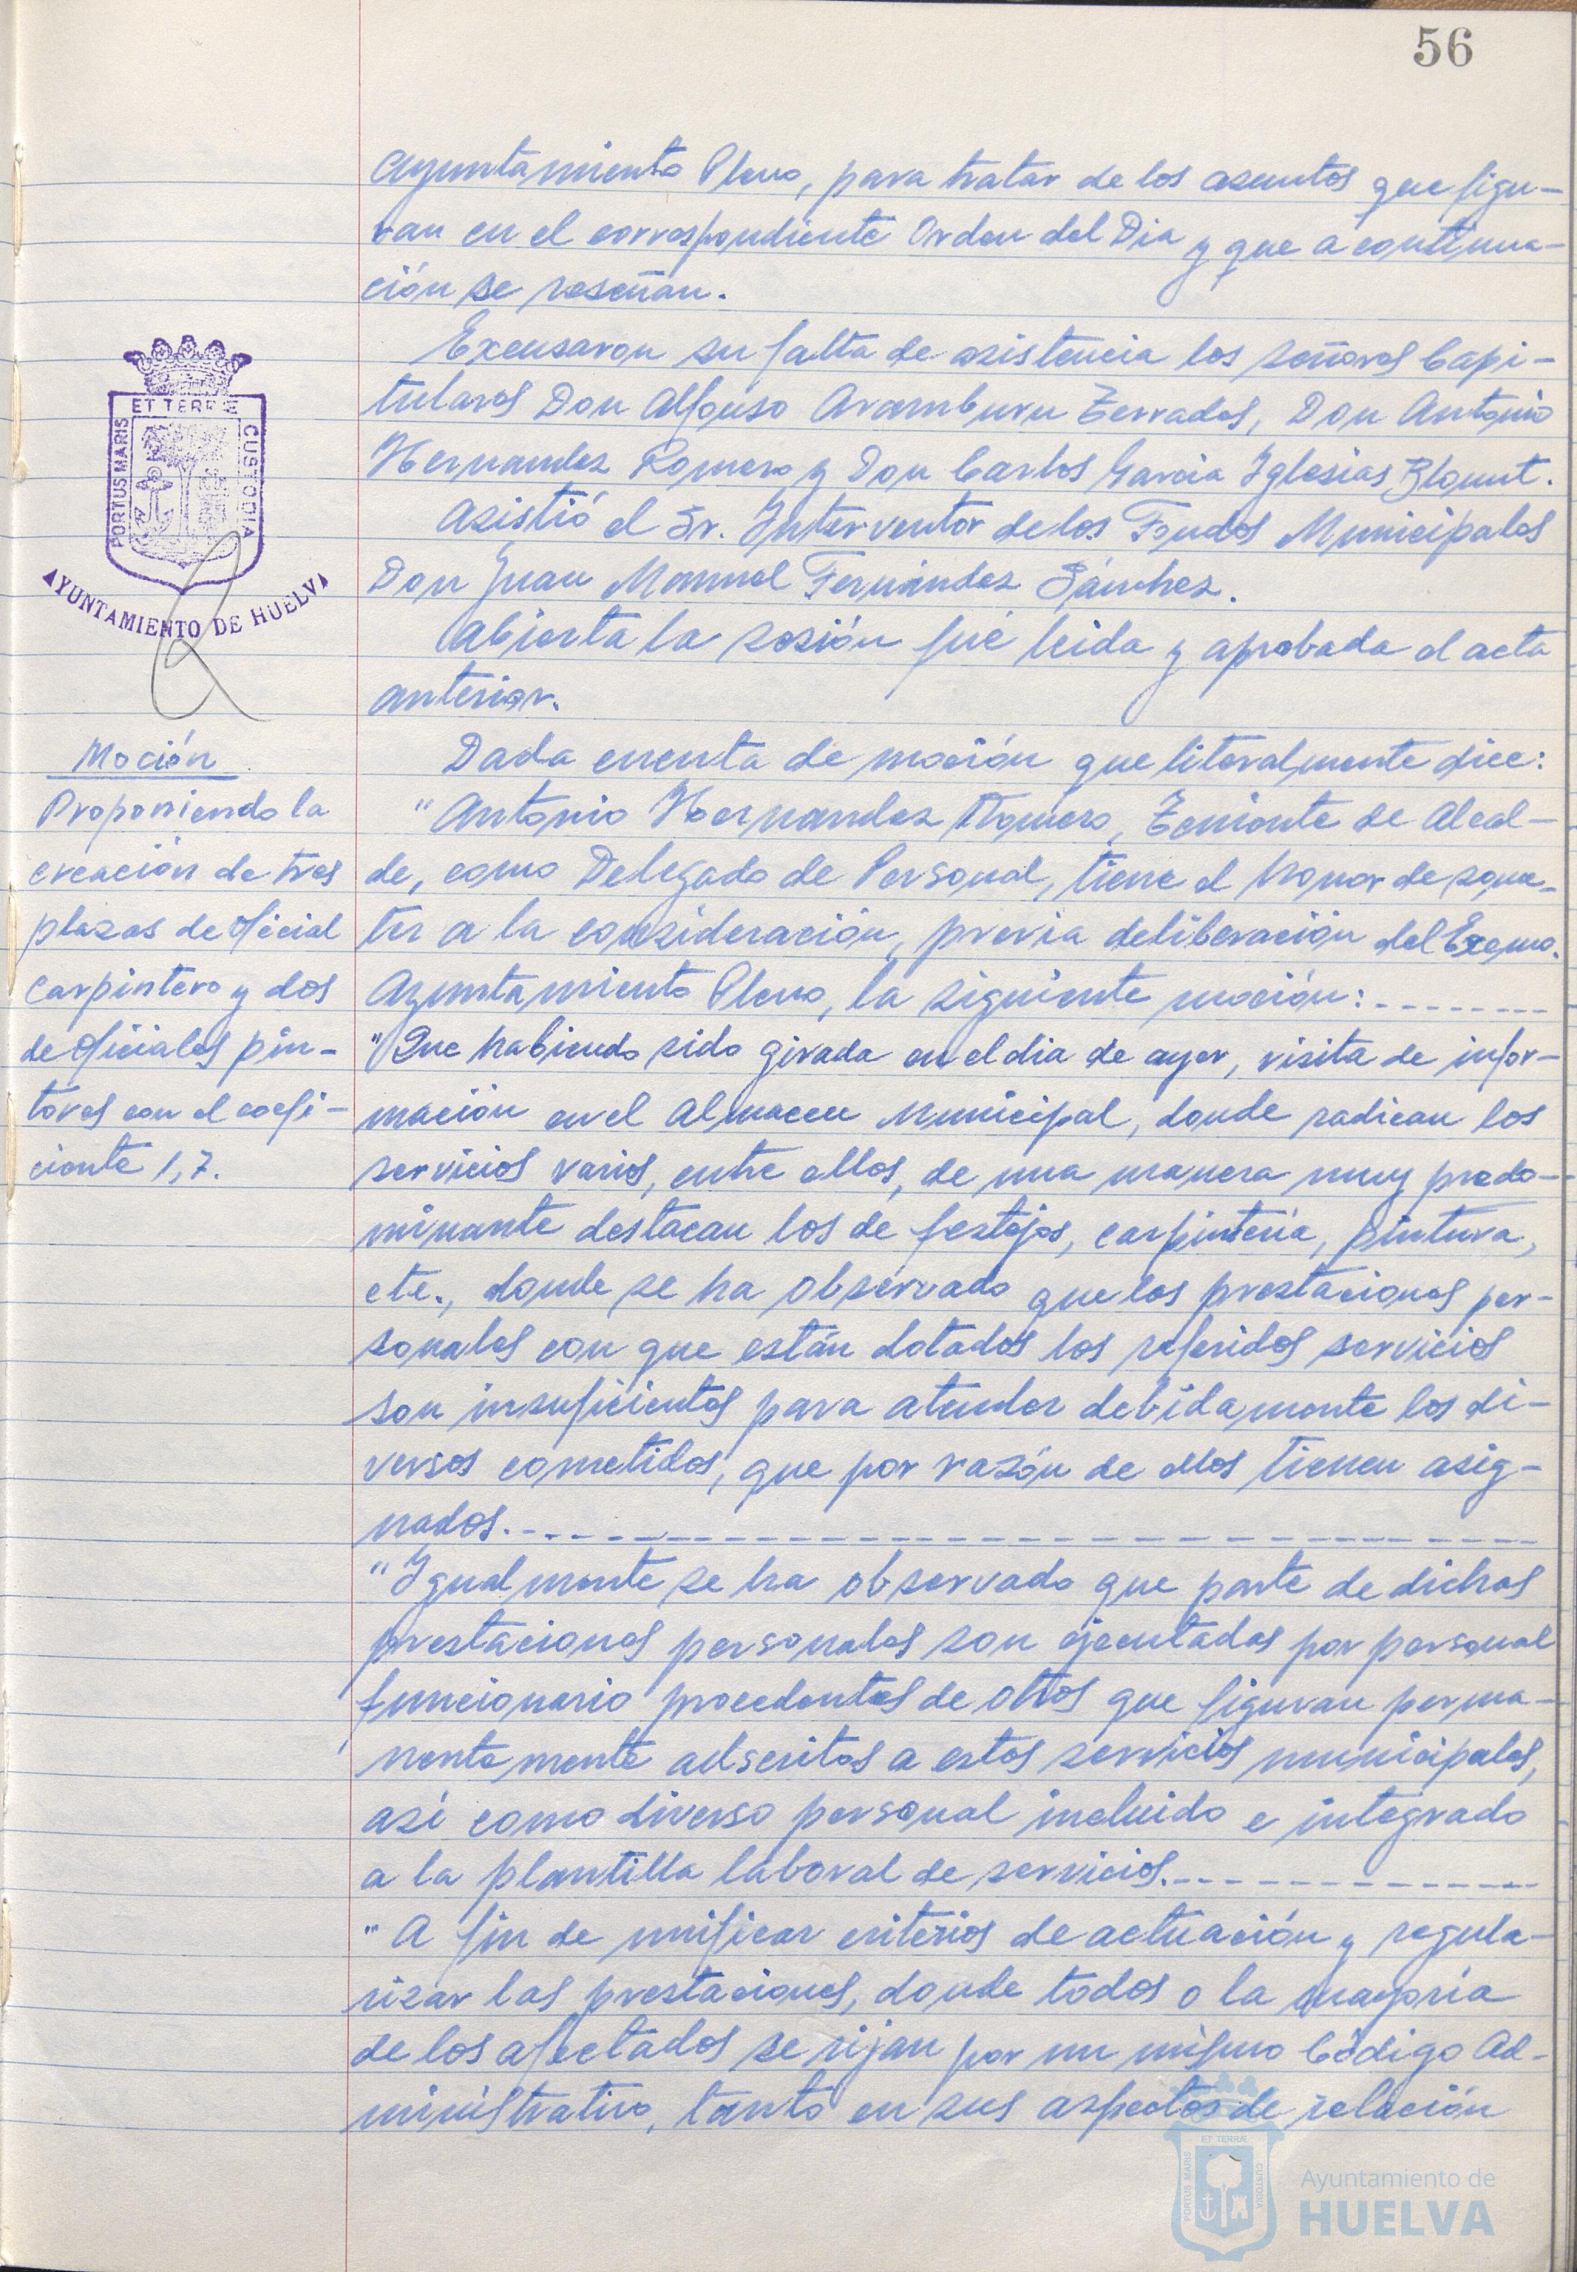 56
Ayuntamiento Pleno, para tratar de los asuntos que figu-
ran en el correspondiente Orden del Dia y que a continua-
ción se reseñan.
Excusaron su falta de asistencia los señores Capi-
tulares Don Alfonso Aramburu Terrades, Don Antonio
Hernandez Romero y Don Carlos Garcia Iglesias Blount.
Asistió el Sr. Interventor de los Fondos Municipales
Don Juan Manuel Fernández Sánchez.
Abierta la sesión fué leida y aprobada el acta
anterior.
ET TERRÆ
PORTUS MARIS
CUSTODIA
AYUNTAMIENTO DE HUELVA
Moción
Proponiendo la
creación de tres
plazas de Oficial
Carpintero y dos
de Oficiales pin-
tores con el coefi-
ciente 1,7.
Dada cuenta de moción que literalmente dice:
"Antonio Hernandez Romero, Teniente de Alcal-
de, como Delegado de Personal, tiene el honor de some-
ter a la consideración, previa deliberación del Excmo.
Ayuntamiento Pleno, la siguiente moción:---------
"Que habiendo sido girada en el dia de ayer, visita de infor-
mación en el Almacen Municipal, donde radican los
servicios varios, entre ellos, de una manera muy predo-
minante destacan los de festejos, carpinteria, pintura,
etc., donde se ha observado que las prestaciones per-
sonales con que están dotados los referidos servicios
son insuficientes para atender debidamente los di-
versos cometidos, que por razón de ellos tienen asig-
nados.---------------------------
"Igualmente se ha observado que parte de dichas
prestaciones personales son ejecutadas por personal
funcionario procedentes de otros que figuran perma-
nentemente adscritos a estos servicios municipales,
asi como diverso personal incluido e integrado
a la plantilla laboral de servicios.--------------
"A fin de unificar criterios de actuación y regula-
rizar las prestaciones, donde todos o la mayoria
de los afectados se rijan por un mismo Código Ad-
ministrativo, tanto en sus aspectos de relación
ET TERRÆ
PORTUS MARIS
CUSTODIA
Ayuntamiento de
HUELVA